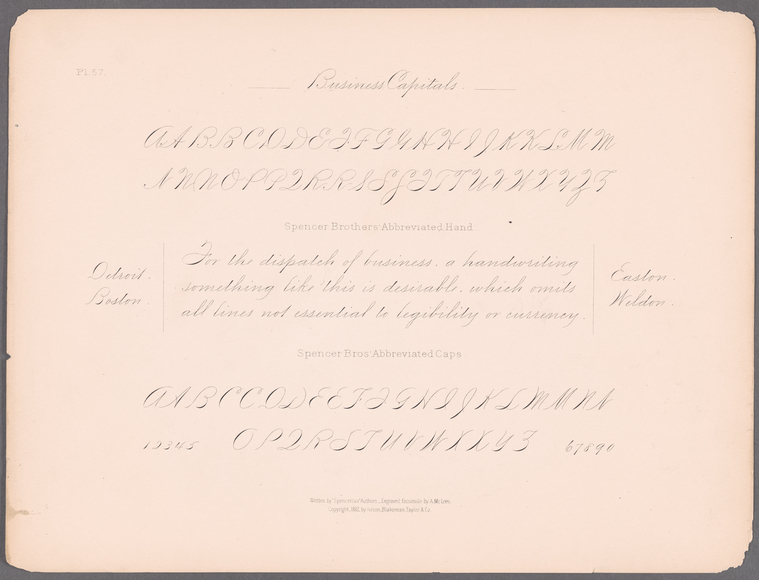 Pl. 57.
Business Capitals.
A A B B C O D E F F G G H H I J K K L M M
N N N O P P Q R R S S S T T U V W X Y Z Z
Spencer Brothers' Abbreviated Hand.
Detroit.
Boston.
For the dispatch of business, a handwriting
something like this is desirable, which omits
all lines not essential to legibility or currency.
Easton.
Weldon.
Spencer Bros' Abbreviated Caps
A A B C C O D E E F F G H I J K L M M N N
12345 O P Q R S T U V W X X Y Z 67890
Written by "Spencerian" Authors. Engraved by A. McLees
Copyright, by Ivison, Blakeman, Taylor & Co.